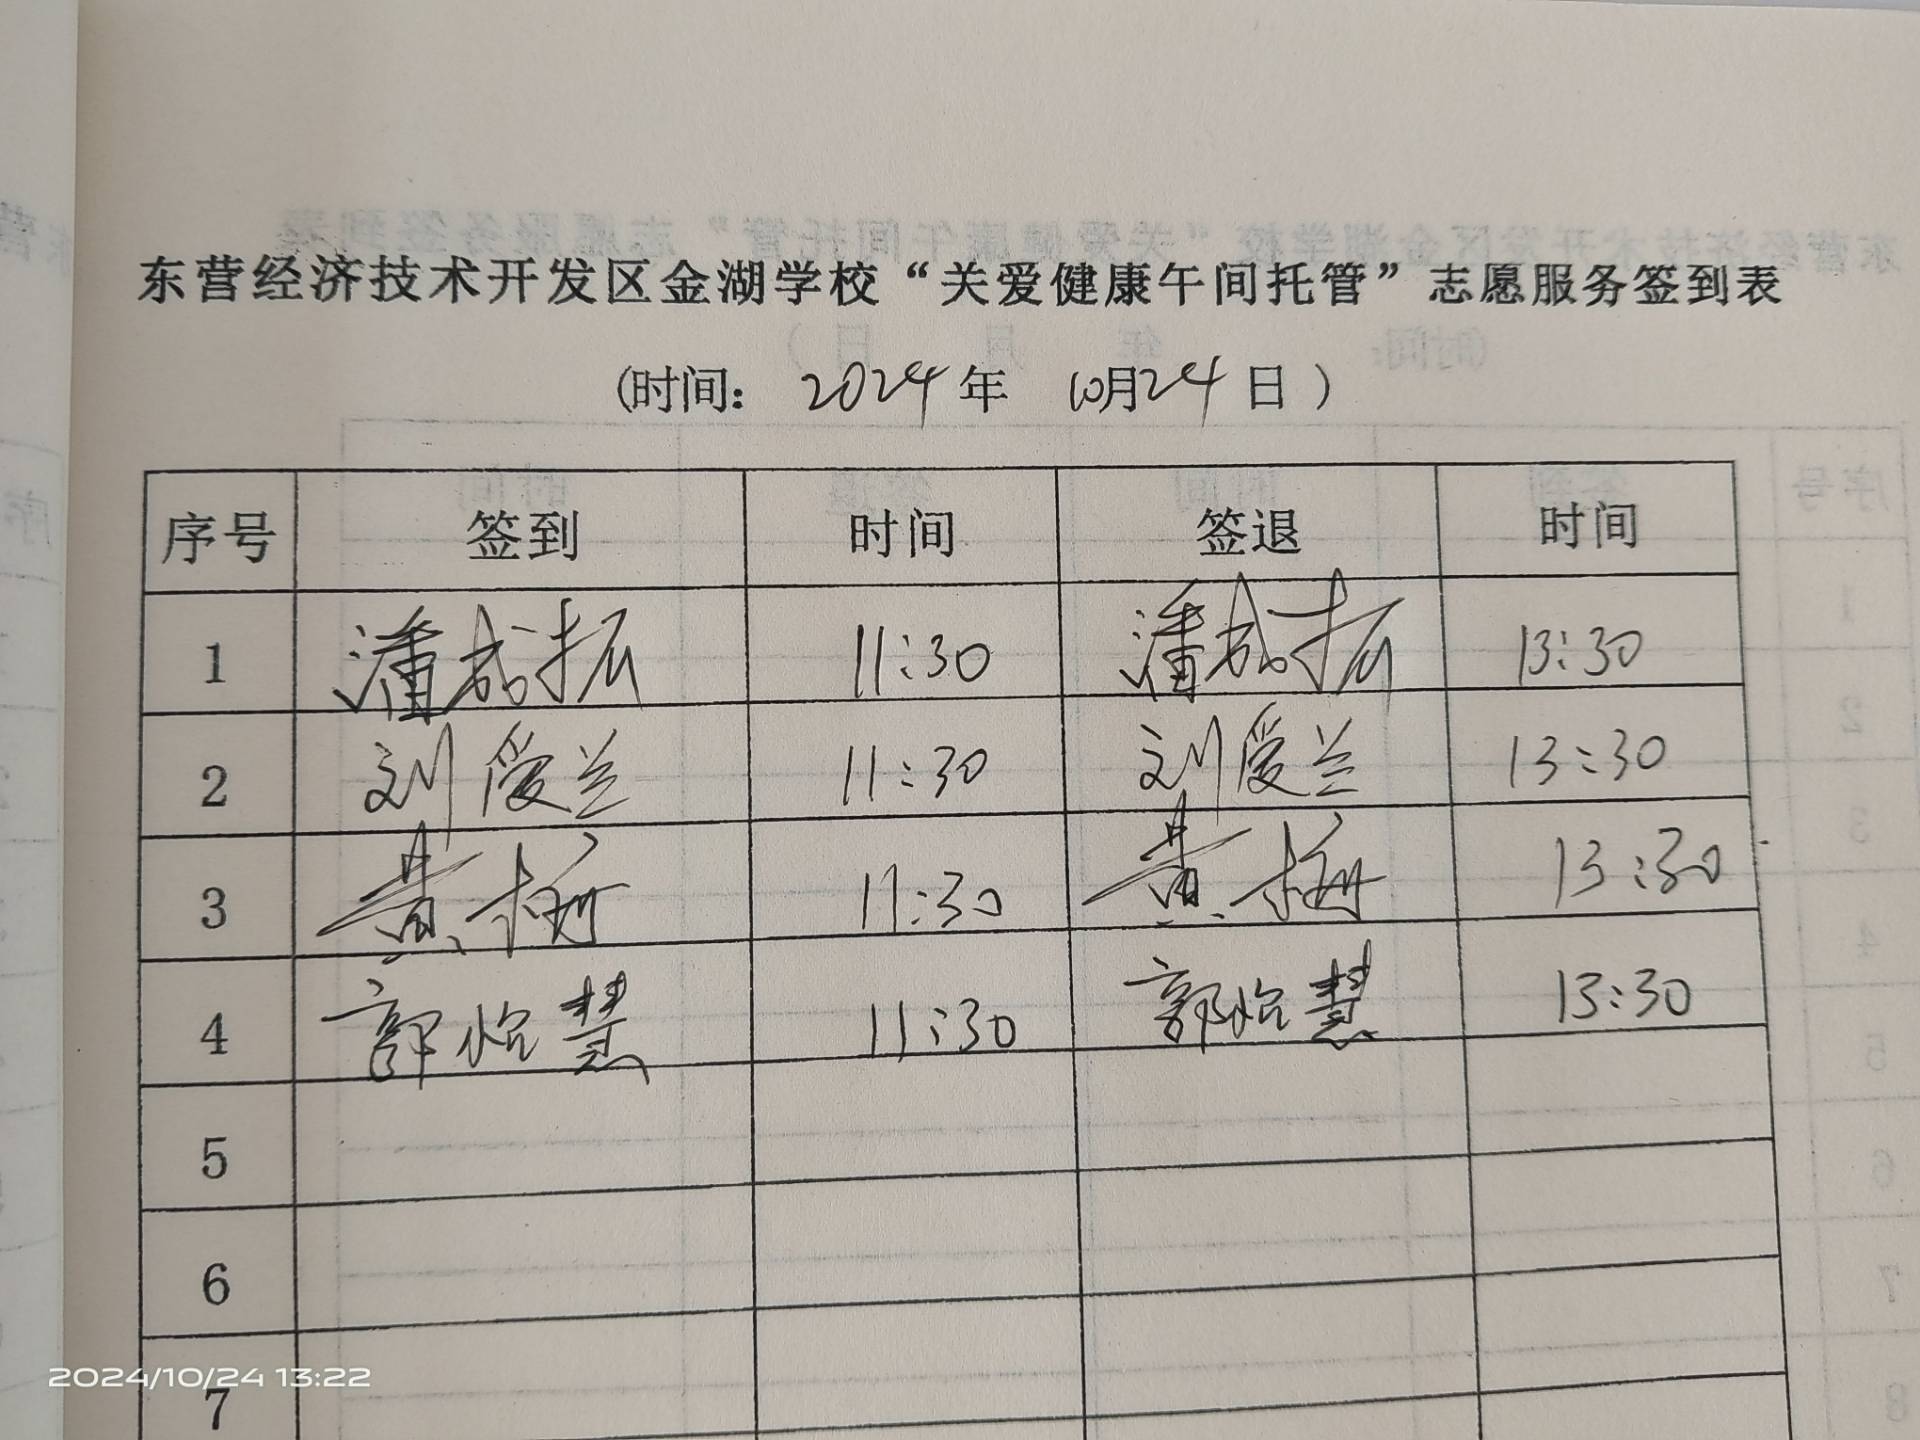 东营经济技术开发区金湖学校“关爱健康午间托管”志愿服务签到表
(时间： 2024年 10月24日 )
序号 签到 时间 签退 时间
1 潘 振 11:30 潘 振 13:30
2 刘爱兰 11:30 刘爱兰 13:30
3 黄梅 11:30 黄梅 13:30
4 郭怡慧 11:30 郭怡慧 13:30
5
6
7
2024/10/24 13:22